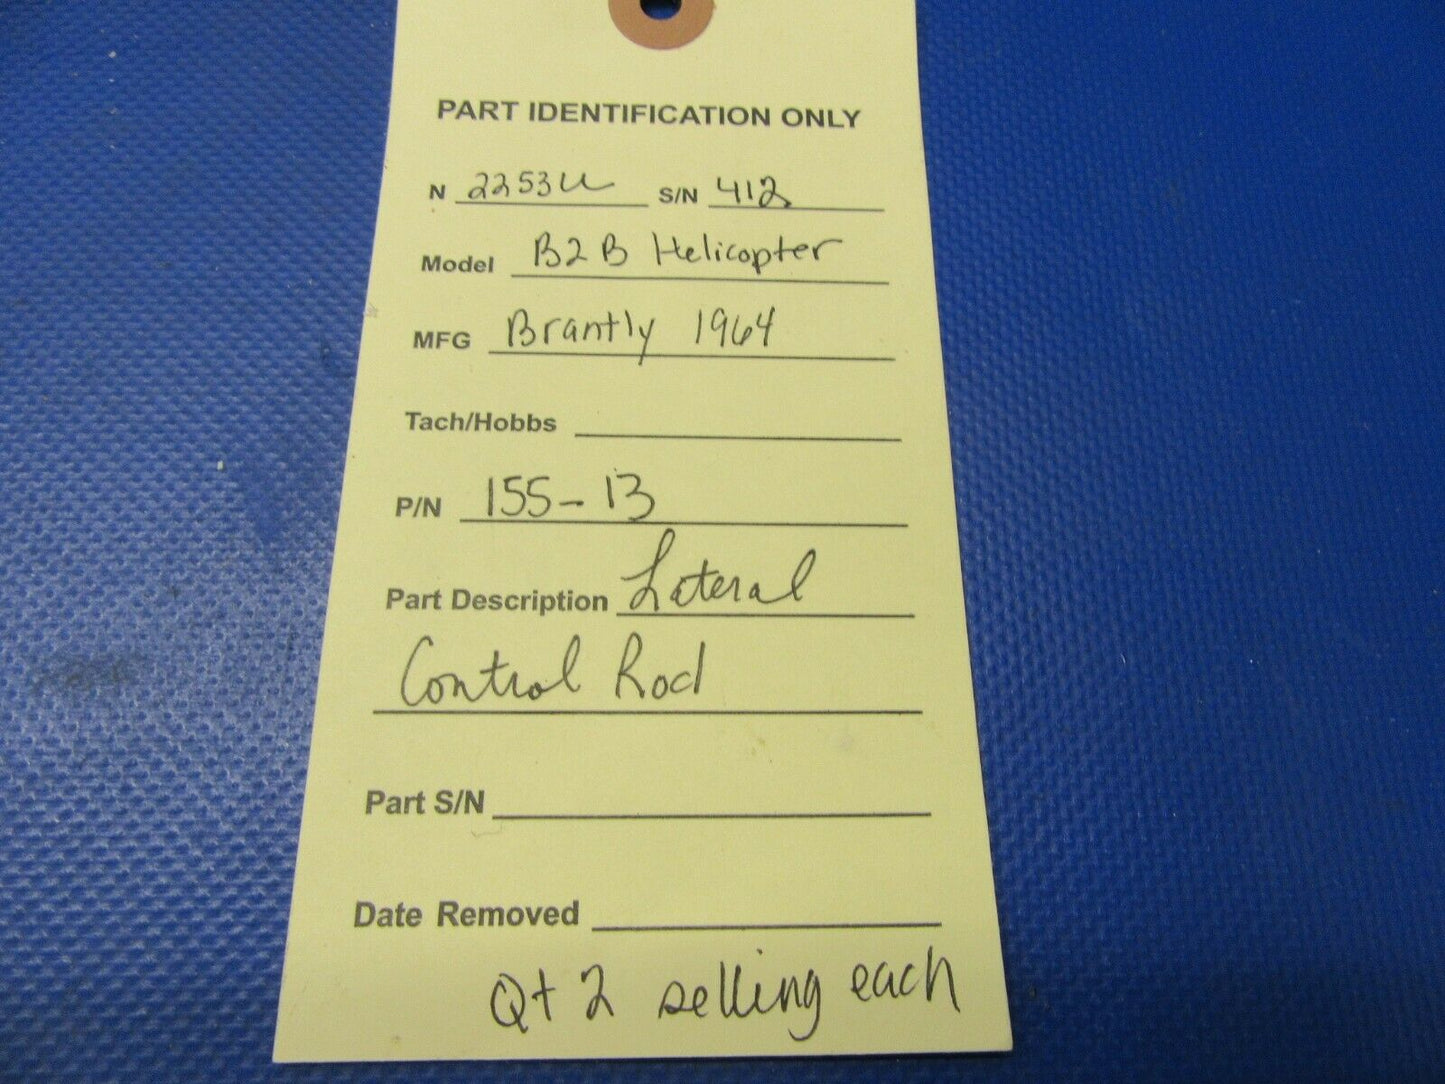 PART IDENTIFICATION ONLY
N 2253U S/N 412
Model B2B Helicopter
MFG Brantly 1964
Tach/Hobbs
P/N 155-13
Part Description Lateral
Control Rod
Part S/N
Date Removed
Qt 2 selling each